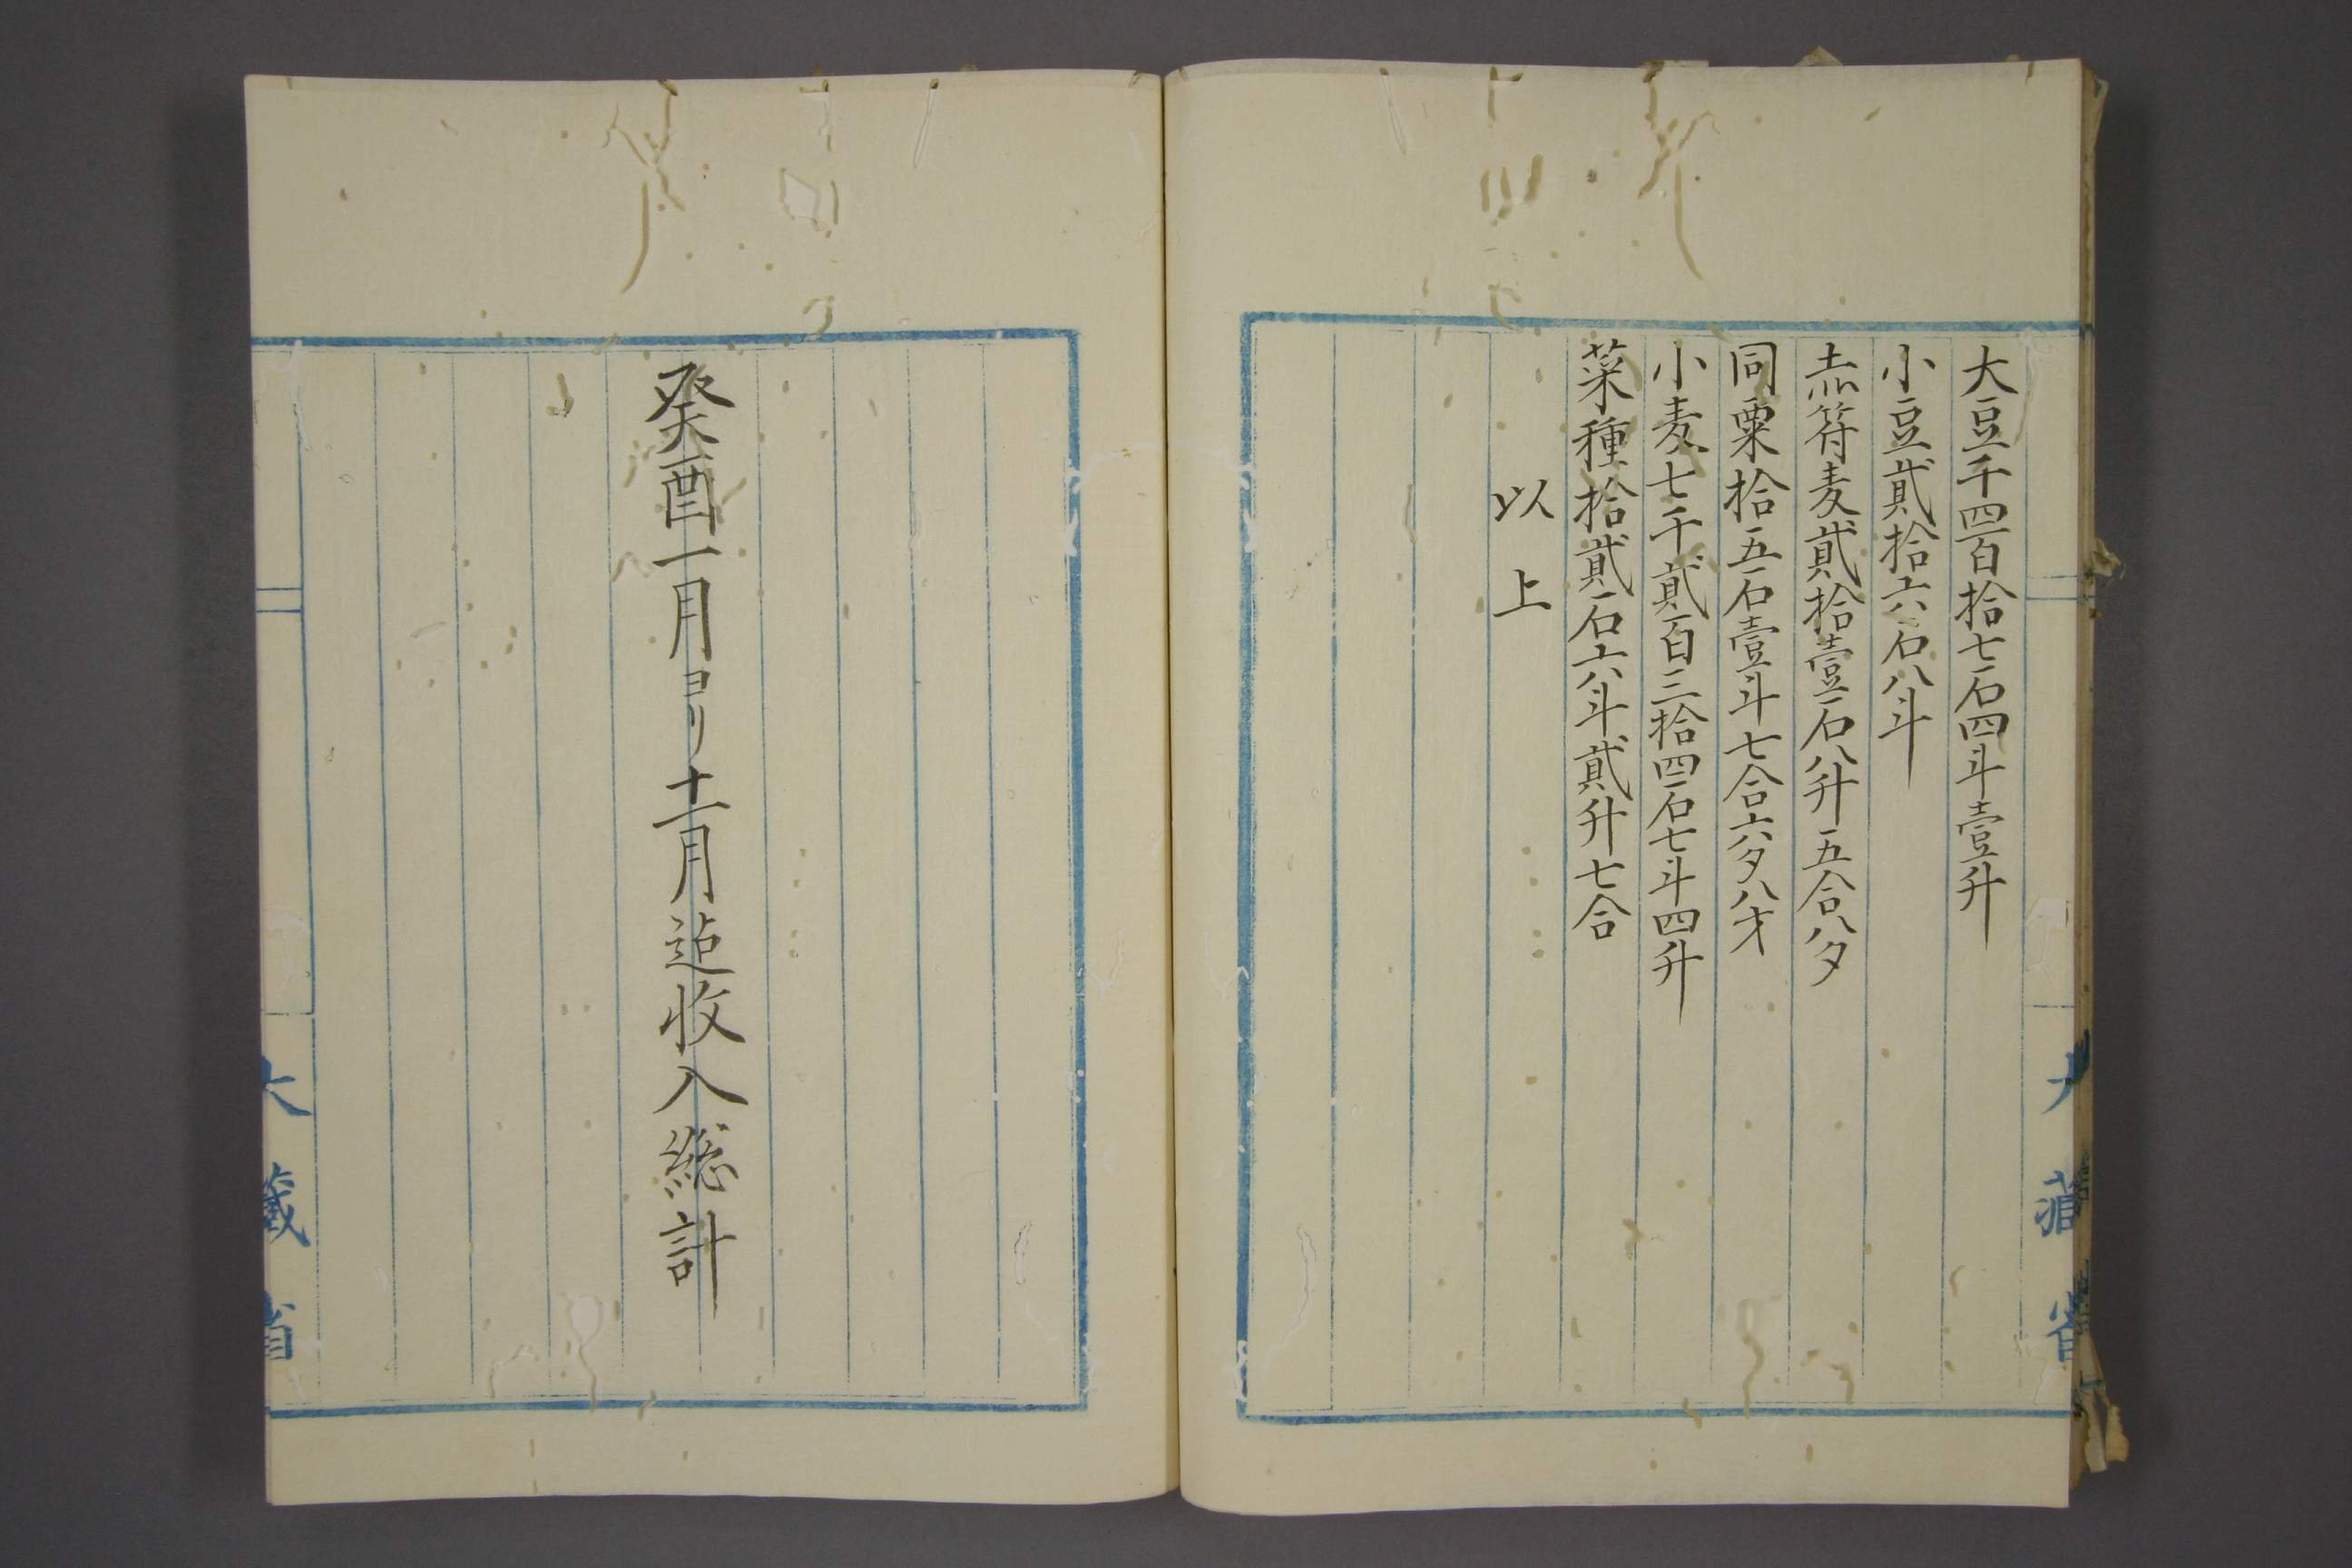 大豆千四百拾七石四斗壹升
小豆貳拾六石八斗
赤符麦貳拾壹石八升五合八夕
同粟拾五石壹斗七合六夕八才
小麦七千貳百三拾四石七斗四升
菜種拾貳石六斗貳升七合
以上
大藏省
癸酉一月ヨリ十二月迠收入総計
大藏省